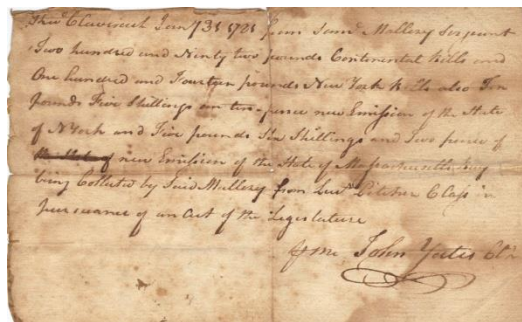 Claverack Jany 31 1781 from Saml Mallery Serjeant
Two hundred and Ninty two pounds Continental Bills and
One hundred and Fourteen pounds New York Bills also Ten
Pounds Five Shillings and ten pence new Emission of the State
of N York and Five pounds Six Shillings and Two pence of
new Emission of the State of Massachusetts Bay
being Colleted by Said Mallery from Lieut Class in
pursuance of an Act of the Legislature
me John Yates